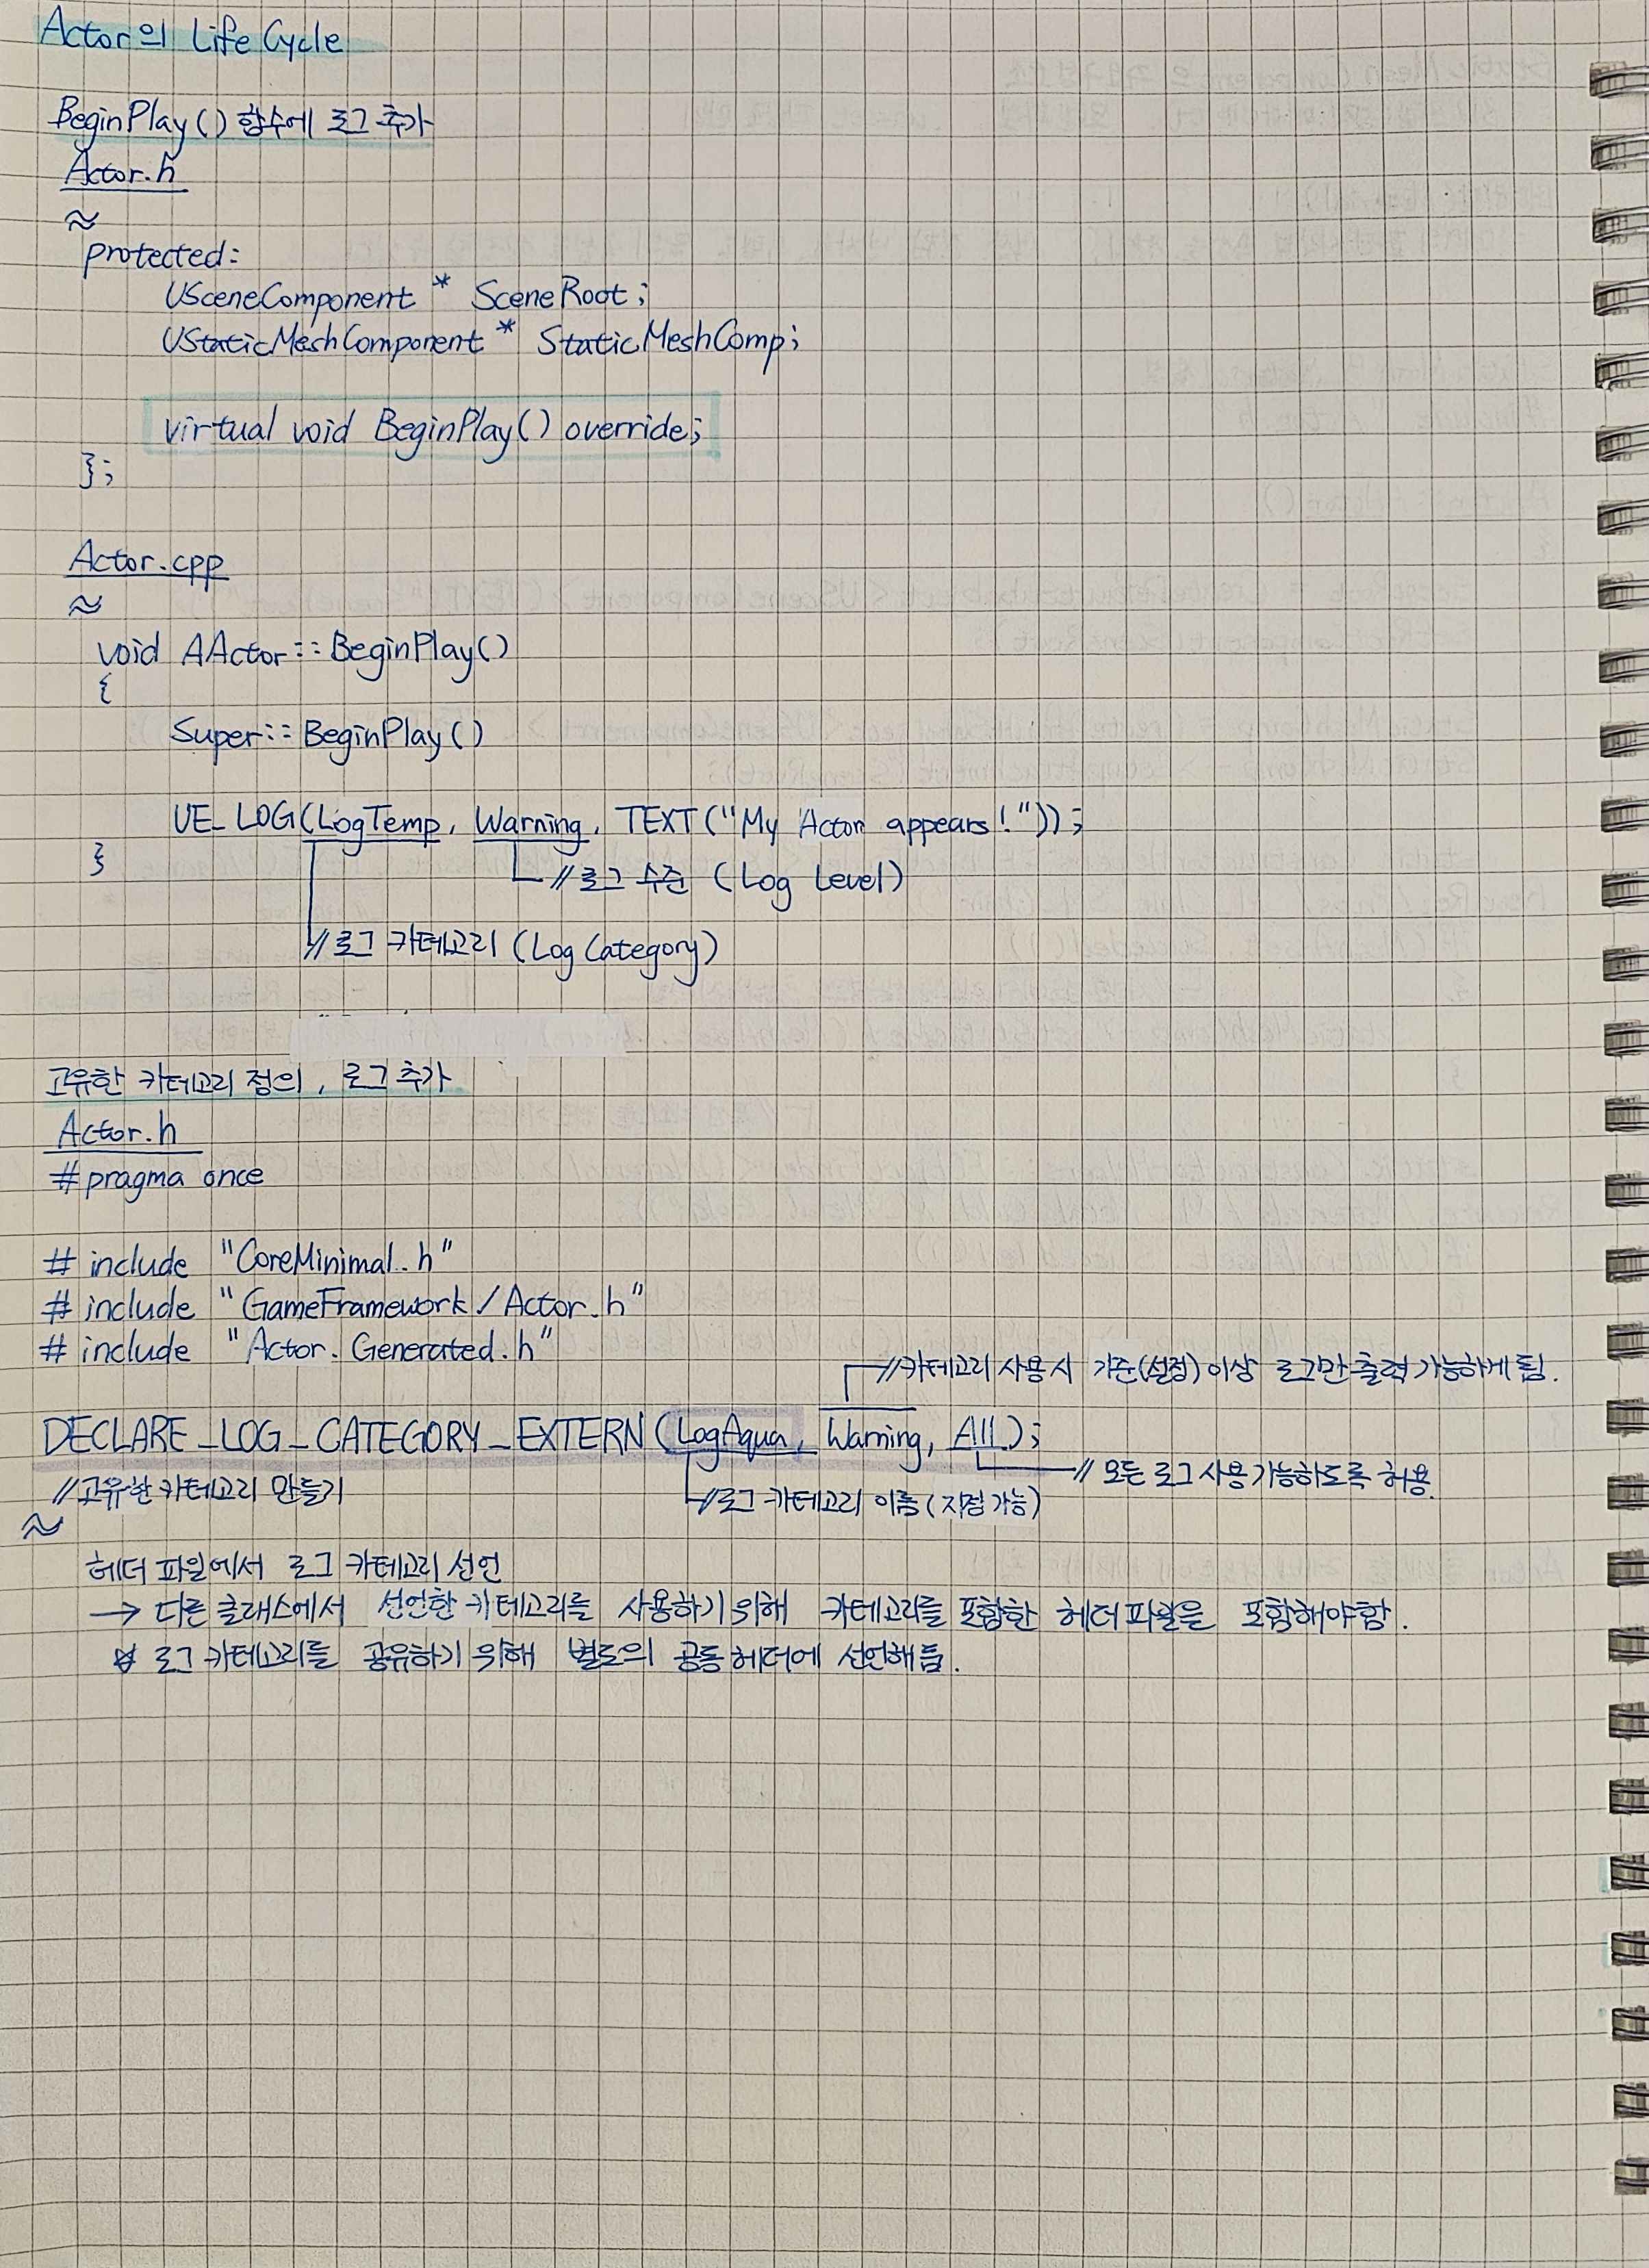 Actor의 Life Cycle
BeginPlay() 함수에 로그 추가
Actor.h
≈
protected:
USceneComponent * SceneRoot;
UStaticMeshComponent * StaticMeshComp;
virtual void BeginPlay() override;
};
Actor.cpp
≈
void AActor::BeginPlay()
{
Super::BeginPlay()
UE_LOG(LogTemp, Warning, TEXT("My Actor appears!"));
}
//로그 수준 (Log Level)
//로그 카테고리 (Log Category)
고유한 카테고리 정의, 로그 추가
Actor.h
#pragma once
# include "CoreMinimal.h"
# include "GameFramework/Actor.h"
# include "Actor.Generated.h"
//카테고리 사용시 기준(설정) 이상 로그만 출력 가능하게 됨.
DECLARE_LOG_CATEGORY_EXTERN(LogAqua, Warning, All);
//모든 로그 사용 가능하도록 허용.
//고유한 카테고리 만들기
//로그 카테고리 이름(지정 가능)
≈
헤더 파일에서 로그 카테고리 선언
→ 다른 클래스에서 선언한 카테고리를 사용하기 위해 카테고리를 포함한 헤더파일을 포함해야함.
로그 카테고리를 공유하기 위해 별도의 공통 헤더에 선언해 둠.